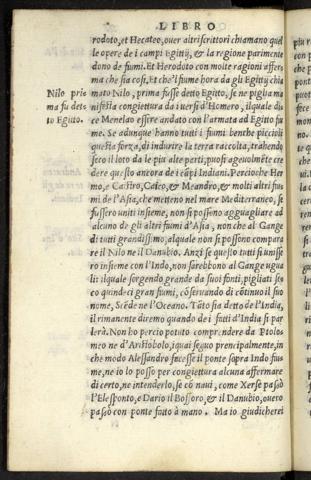 LIBRO
rodoto, et Hecateo, ouer altri scrittori chiamano quel
le opere de i campi Egittij, & la regione parimente
dono de fiumi. Et Herodoto con molte ragioni affer
ma che sia cosi. Et che'l fiume hora da gli Egittij chia
Nilo pri
ma fu det
to Egitto.
mato Nilo, prima fusse detto Egitto, se ne piglia ma
nifesta congiettura da i uersi d'Homero, ilquale di
ce Menelao essere andato con l'armata ad Egitto fiu
me. Se adunque hanno tutti i fiumi benche piccioli
questa forza, di indurire la terra raccolta, trahendo
seco il loto da le piu alte parti, puossi ageuolmete cre
dere questo ancora de i cāpi Indiani. Percioche Her
mo, e Castro, Caico, & Meandro, & molti altri fiu
mi de l'Asia, che mettono nel mare Mediterraneo, se
fussero uniti insieme, non si possono agguagliare ad
alcuno de gli altri fiumi d'Asia, non che al Gange
di tutti grandissimo, alquale non si possono compara
re il Nilo ne il Danubio. Anzi se questo tutti si unisse
ro insieme con l'Indo, non sarebbono al Gange ugua
li: ilquale sorgendo grande da suoi fonti, pigliati se
co quindeci gran fiumi, cōseruando di cōtinuo il suo
nome, Scēde ne l'Oceano. Tāto sia detto de l'India,
il rimanente diremo quando de i fatti d'India si par
lerà. Non ho percio potuto comprendere da Ptolo
meo ne d'Aristobolo, i quai seguo principalmente, in
che modo Alessandro facesse il ponte sopra Indo fiu
me, ne io lo posso per congiettura alcuna affermare
di certo, ne intenderlo, se cō naui, come Xerse passò
l'Elesponto, e Dario il Bosforo, & il Danubio, ouero
passò con ponte fatto à mano. Ma io giudicherei